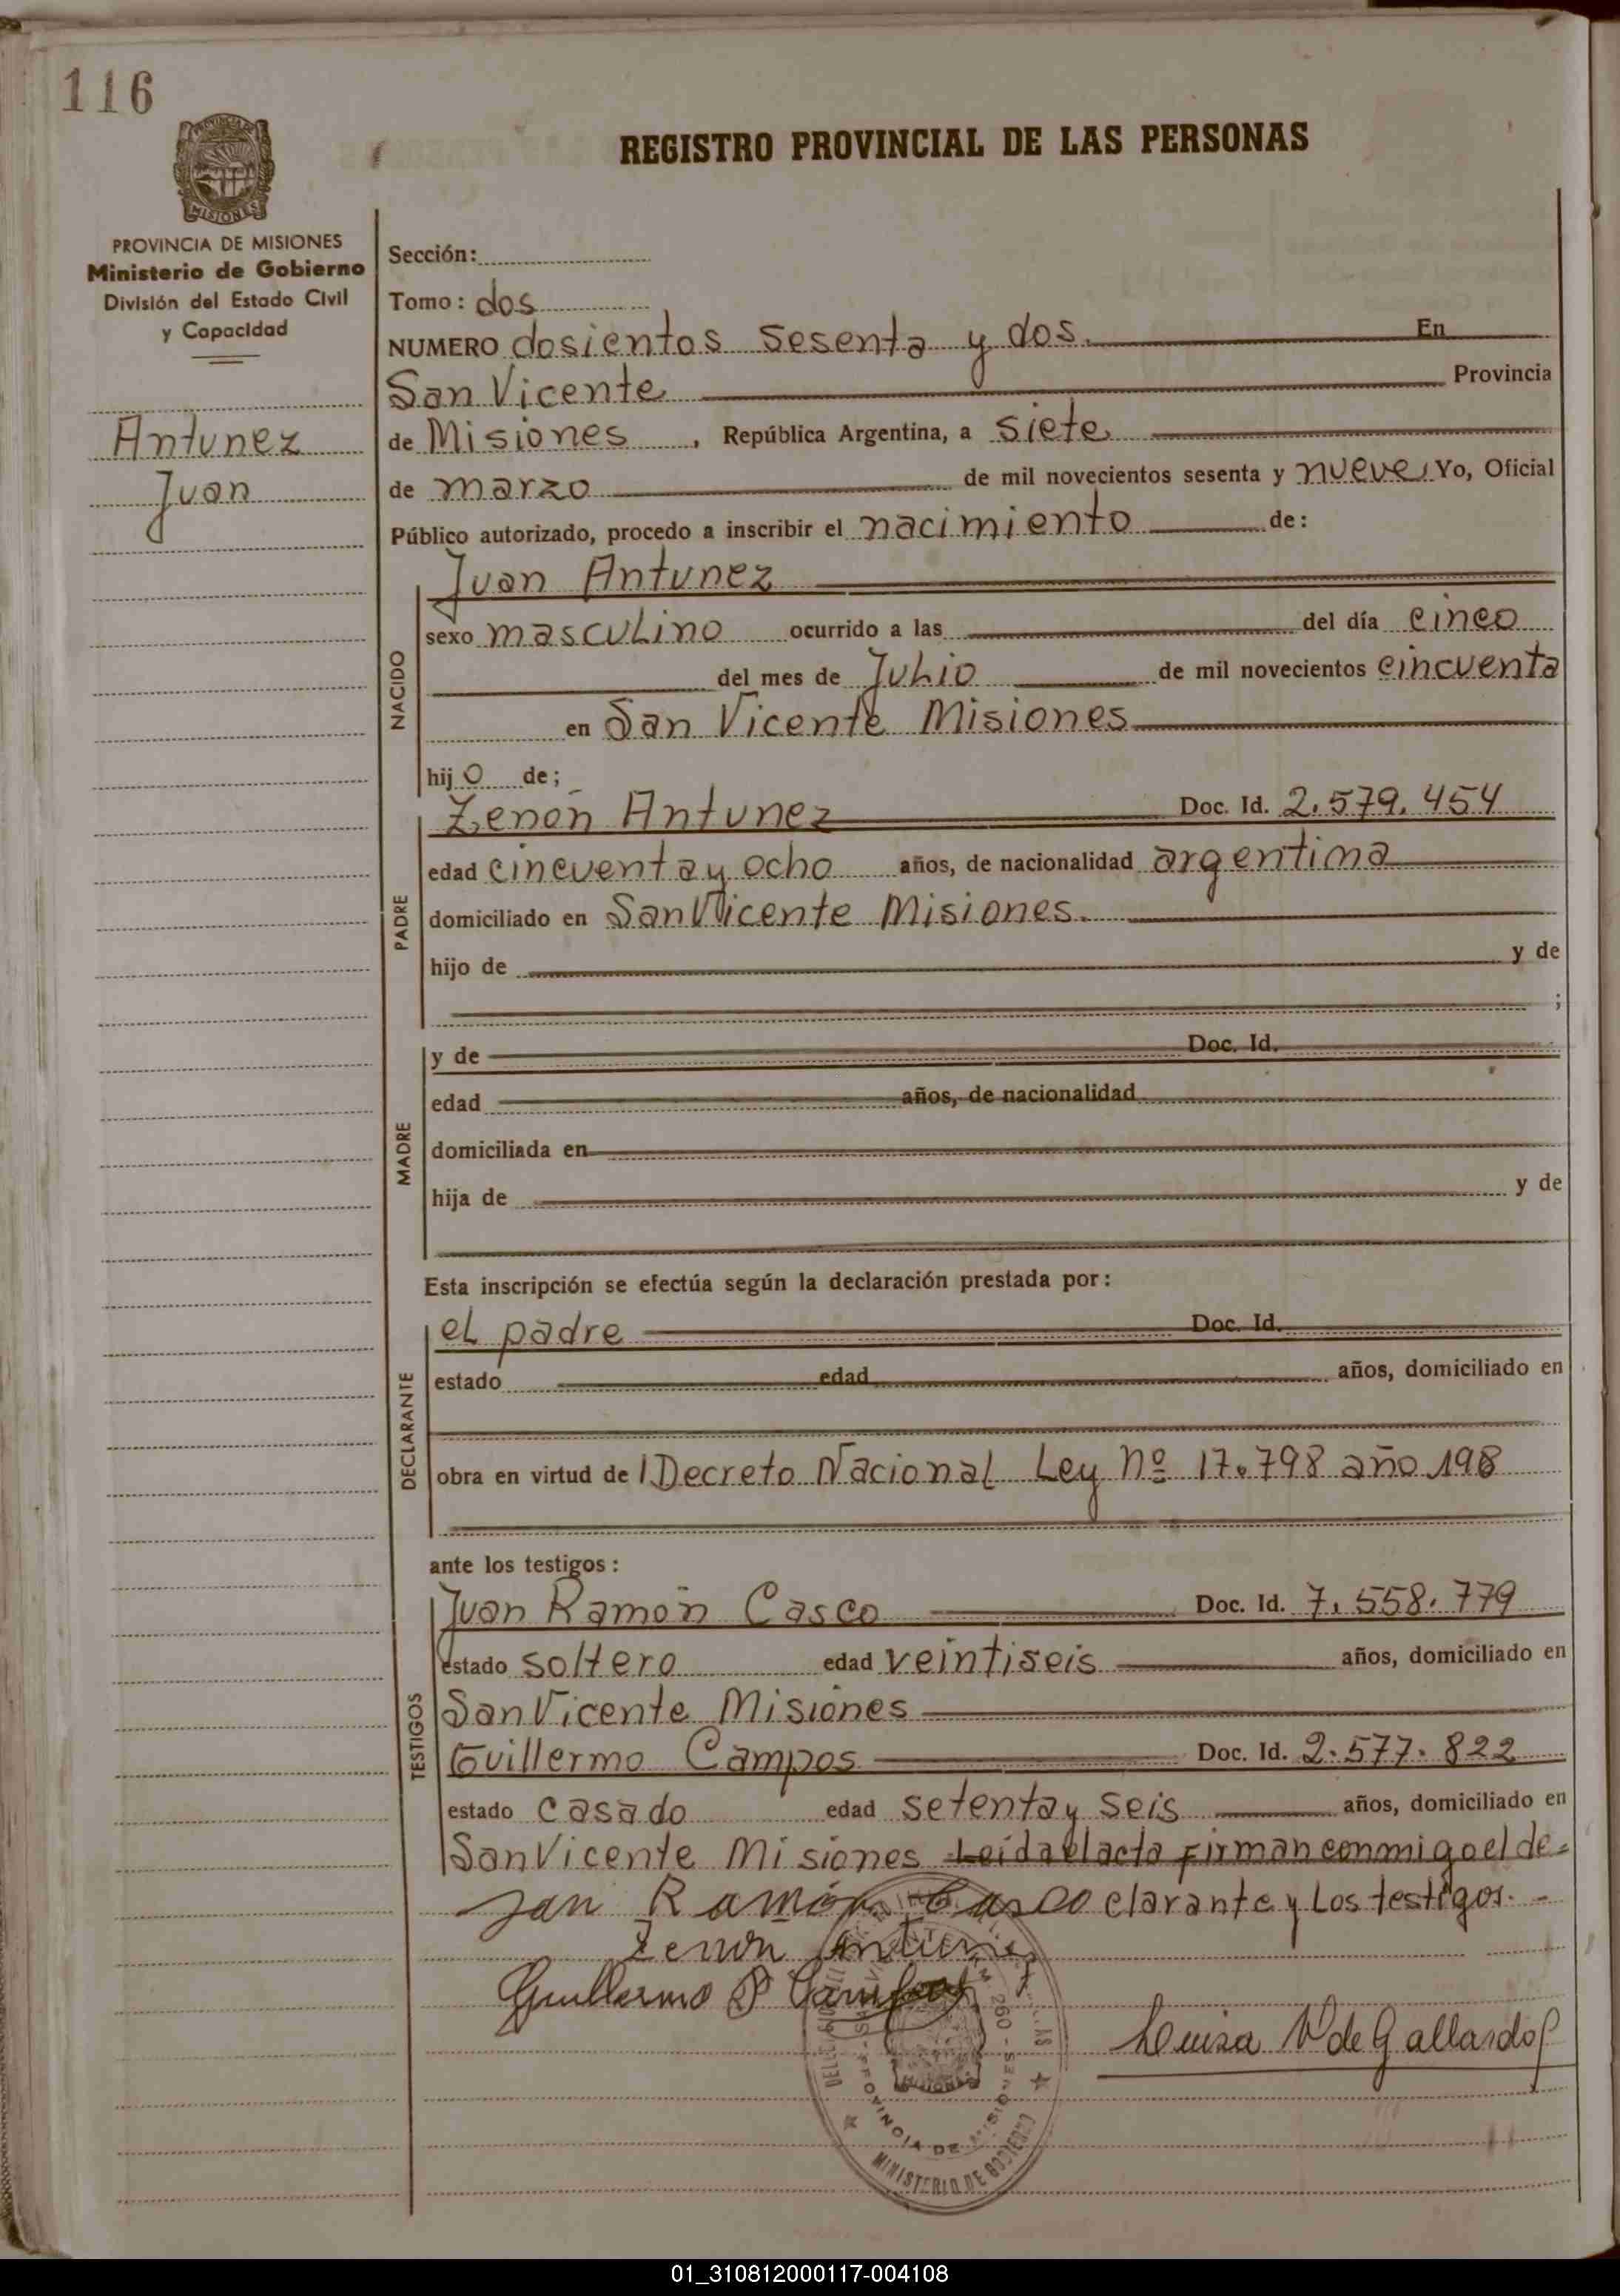 116
REGISTRO PROVINCIAL DE LAS PERSONAS
PROVINCIA DE MISIONES
Ministerio de Gobierno
División del Estado Civil
y Capacidad
Antunez
Juan
Sección:
Tomo: dos
NUMERO dosientos sesenta y dos. En
San Vicente Provincia
de Misiones, República Argentina, a siete
de marzo de mil novecientos sesenta y nueve, Yo, Oficial
Público autorizado, procedo a inscribir el nacimiento de:
NACIDO
Juan Antunez
sexo masculino ocurrido a las del día cinco
del mes de Julio de mil novecientos cincuenta
en San Vicente Misiones
hijo de;
PADRE
Zenón Antunez Doc. Id. 2.579.454
edad cincuenta y ocho años, de nacionalidad argentina
domiciliado en San Vicente Misiones.
hijo de y de
;
MADRE
y de Doc. Id.
edad años, de nacionalidad
domiciliada en
hija de y de
Esta inscripción se efectúa según la declaración prestada por:
DECLARANTE
el padre Doc. Id.
estado edad años, domiciliado en
obra en virtud de l Decreto Nacional Ley Nº 17.798 año 198
ante los testigos:
TESTIGOS
Juan Ramón Casco Doc. Id. 7.558.779
estado soltero edad veintiseis años, domiciliado en
San Vicente Misiones
Guillermo Campos Doc. Id. 2.577.822
estado casado edad setenta y seis años, domiciliado en
San Vicente Misiones Leida el acta firman conmigo el de=
Juan Ramón Casco clarante y los testigos.-
Zenon Antunez
Guillermo Campos
Luisa V de Gallardo
PROVINCIA DE MISIONES
MINISTERIO DE GOBIERNO
01_310812000117-004108